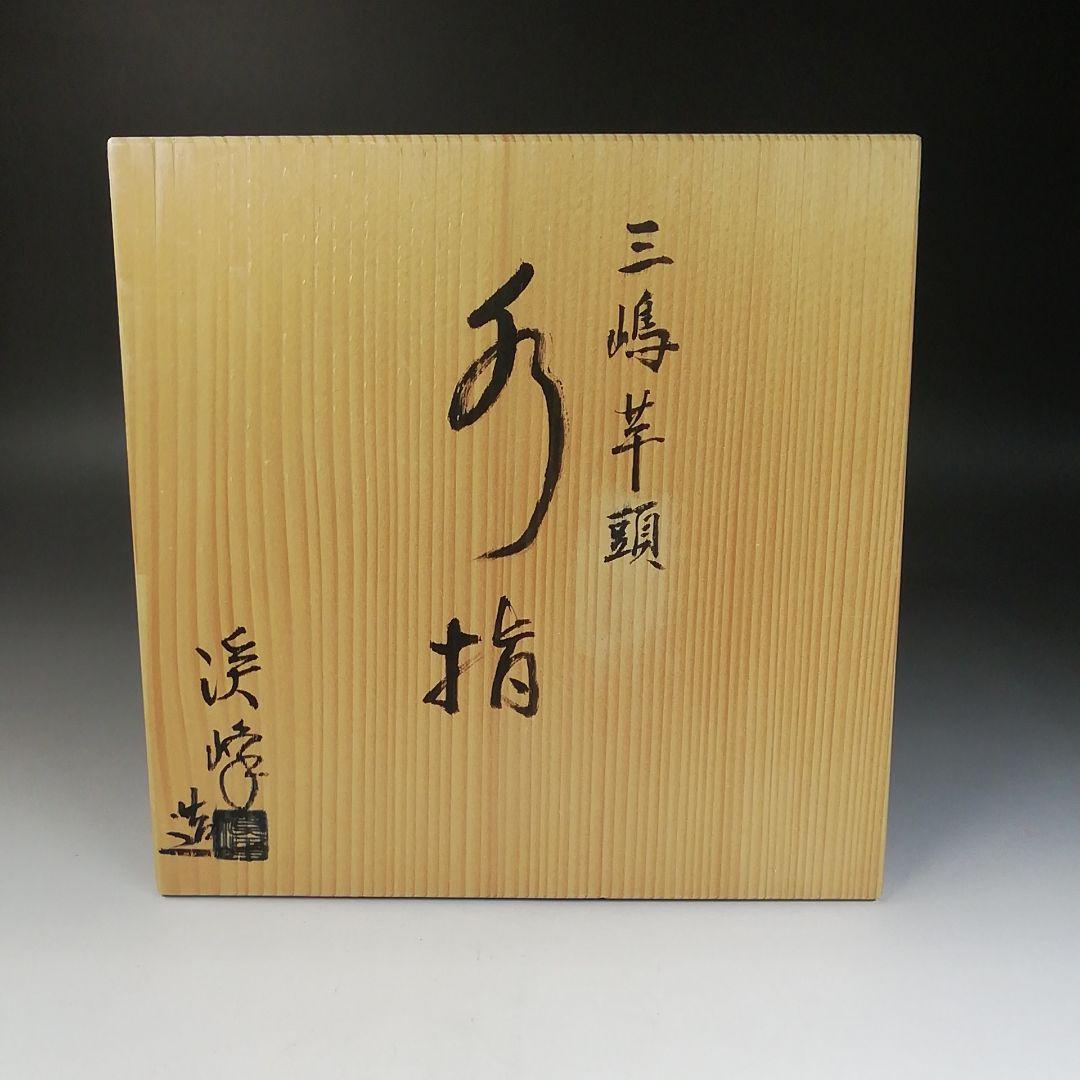 三嶋芋頭
水指
渓峰造